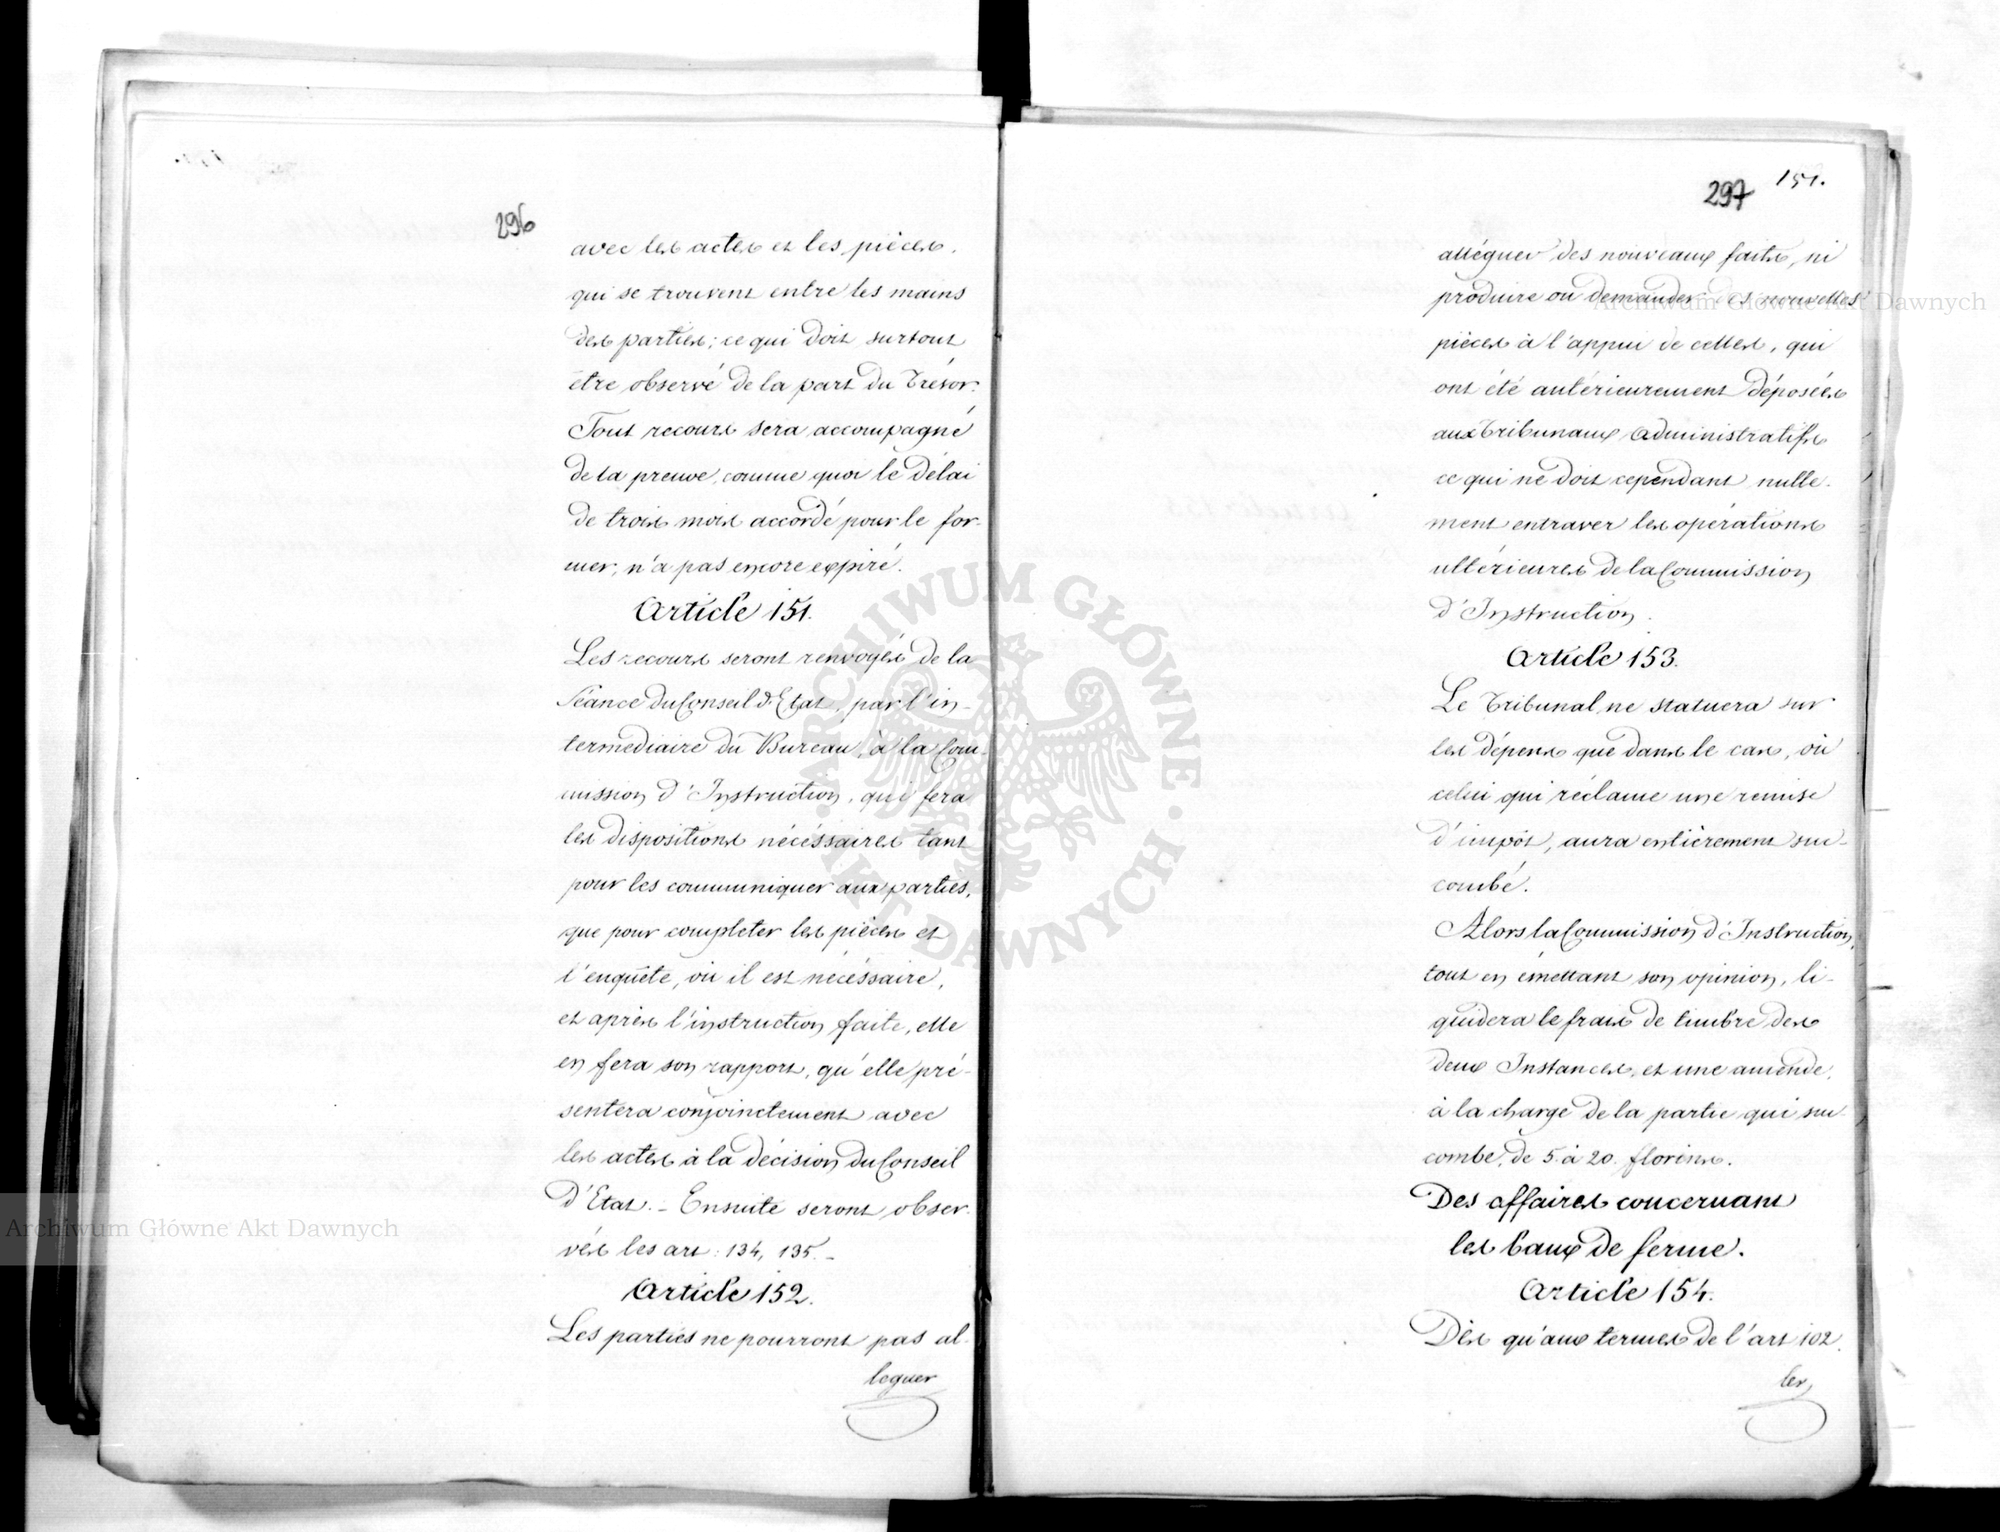 296
avec les actes et les pièces,
qui se trouvent entre les mains
des parties; ce qui doit surtout
être observé de la part du Trésor.
Tout recours sera accompagné
de la preuve, comme quoi le délai
de trois mois accordé pour le for-
mer, n'a pas encore expiré.
Article 151.
Les recours seront renvoyés de la
Séance du Conseil d'Etat, par l'in-
termediaire du Bureau, à la Com-
mission d'Instruction, qui fera
les dispositions nécéssaires tant
pour les communiquer aux parties,
que pour completer les pièces et
l'enquête, où il est nécéssaire,
et après l'instruction faite, elle
en fera son rapport, qu'elle pré-
sentera conjoinctement avec
les actes à la décision du Conseil
d'Etat. - Ensuite seront obser-
vés les art: 134, 135. -
Article 152.
Les parties ne pourront pas al-
leguer
297 151.
alléguer des nouveaux faits, ni
produire ou demander des nouvelles
pièces à l'appui de celles, qui
ont été antérieurement déposées
aux Tribunaux Administratifs
ce qui ne doit cependant nulle-
ment entraver les opérations
ultérieures de la Commission
d'Instruction.
Article 153.
Le Tribunal ne statuera sur
les dépens que dans le cas, où
celui qui réclame une remise
d'impôt, aura entièrement suc-
combé.
Alors la Commission d'Instruction,
tout en émettant son opinion, li-
quidera le frais de timbre des
deux Instances, et une amende,
à la charge de la partie qui suc-
combe, de 5 à 20 florins.
Des affaires concernant
les baux de ferme.
Article 154.
Dès qu'aux termes de l'art 102.
les
Archiwum Główne Akt Dawnych
Archiwum Główne Akt Dawnych
ARCHIWUM GŁÓWNE · AKT DAWNYCH ·